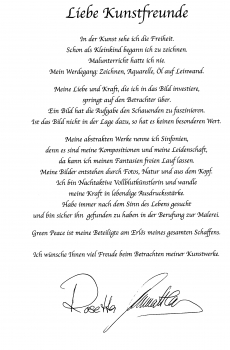 Liebe Kunstfreunde
In der Kunst sehe ich die Freiheit.
Schon als Kleinkind begann ich zu zeichnen.
Malunterricht hatte ich nie.
Mein Werdegang: Zeichnen, Aquarelle, Öl auf Leinwand.
Meine Liebe und Kraft, die ich in das Bild investiere,
springt auf den Betrachter über.
Ein Bild hat die Aufgabe den Schauenden zu faszinieren.
Ist das Bild nicht in der Lage dazu, so hat es keinen besonderen Wert.
Meine abstrakten Werke nenne ich Sinfonien,
denn es sind meine Kompositionen und meine Leidenschaft,
da kann ich meinen Fantasien freien Lauf lassen.
Meine Bilder entstehen durch Fotos, Natur und aus dem Kopf.
Ich bin Nachtaktive Vollblutkünstlerin und wandle
meine Kraft in lebendige Ausdrucksstärke.
Habe immer nach dem Sinn des Lebens gesucht
und bin sicher ihn gefunden zu haben in der Berufung zur Malerei.
Green Peace ist meine Beteiligte am Erlös meines gesamten Schaffens.
Ich wünsche Ihnen viel Freude beim Betrachten meiner Kunstwerke.
Rosetta